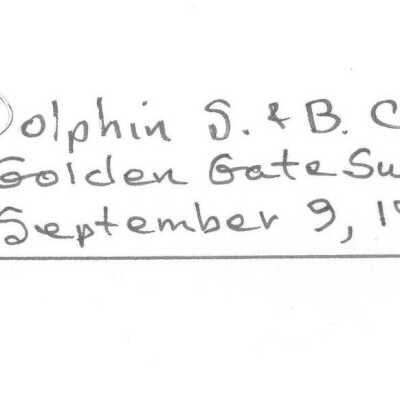 Dolphin S. & B. C
Golden Gate Su
September 9, 19